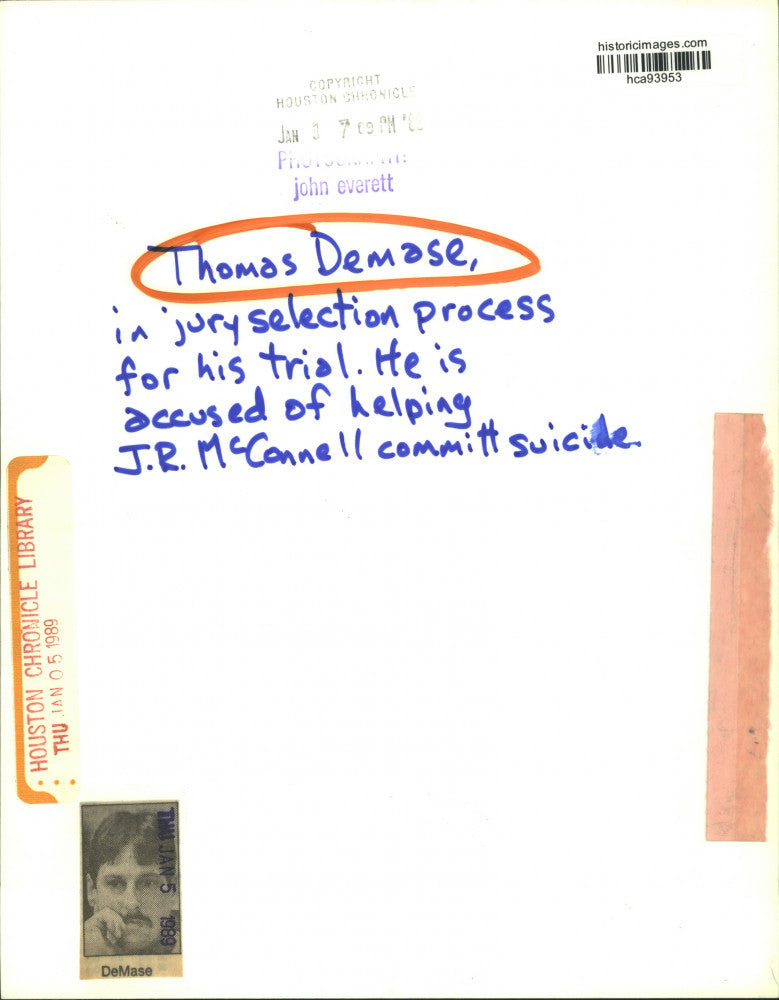 historicimages.com
hca93953
COPYRIGHT
HOUSTON CHRONICLE
JAN 3 7 PM
john everett
Thomas Demase,
in jury selection process
for his trial. He is
accused of helping
J.R. McConnell committ suicide.
HOUSTON CHRONICLE LIBRARY
THU JAN 05 1989
THU JAN 5 1989
DeMase